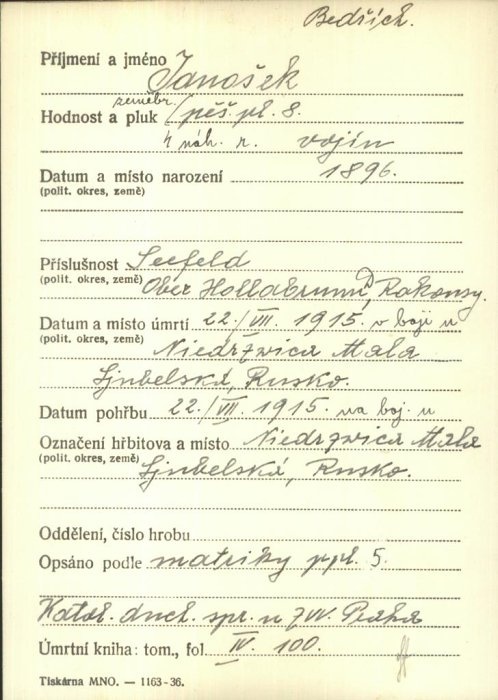 Bedřich.
Příjmení a jméno Janošek
zeměbr.
Hodnost a pluk pěš. pl. 8.
4 náh. r. vojín
Datum a místo narození 1896.
(polit. okres, země)
Příslušnost Seefeld
(polit. okres, země) Ober Hollabrunn, Rakousy.
Datum a místo úmrtí 22./VII. 1915. v boji u
(polit. okres, země) Niedrzwica Mala
Ljubelská, Rusko.
Datum pohřbu 22./VII. 1915. na boj. u
Označení hřbitova a místo Niedrzwica Mala
(polit. okres, země) Ljubelská, Rusko.
Oddělení, číslo hrobu
Opsáno podle matriky ppl. 5.
Katol. duch. spr. u ZVV. Praha
Úmrtní kniha: tom., fol. IV. 100.
Tiskárna MNO. — 1163-36.